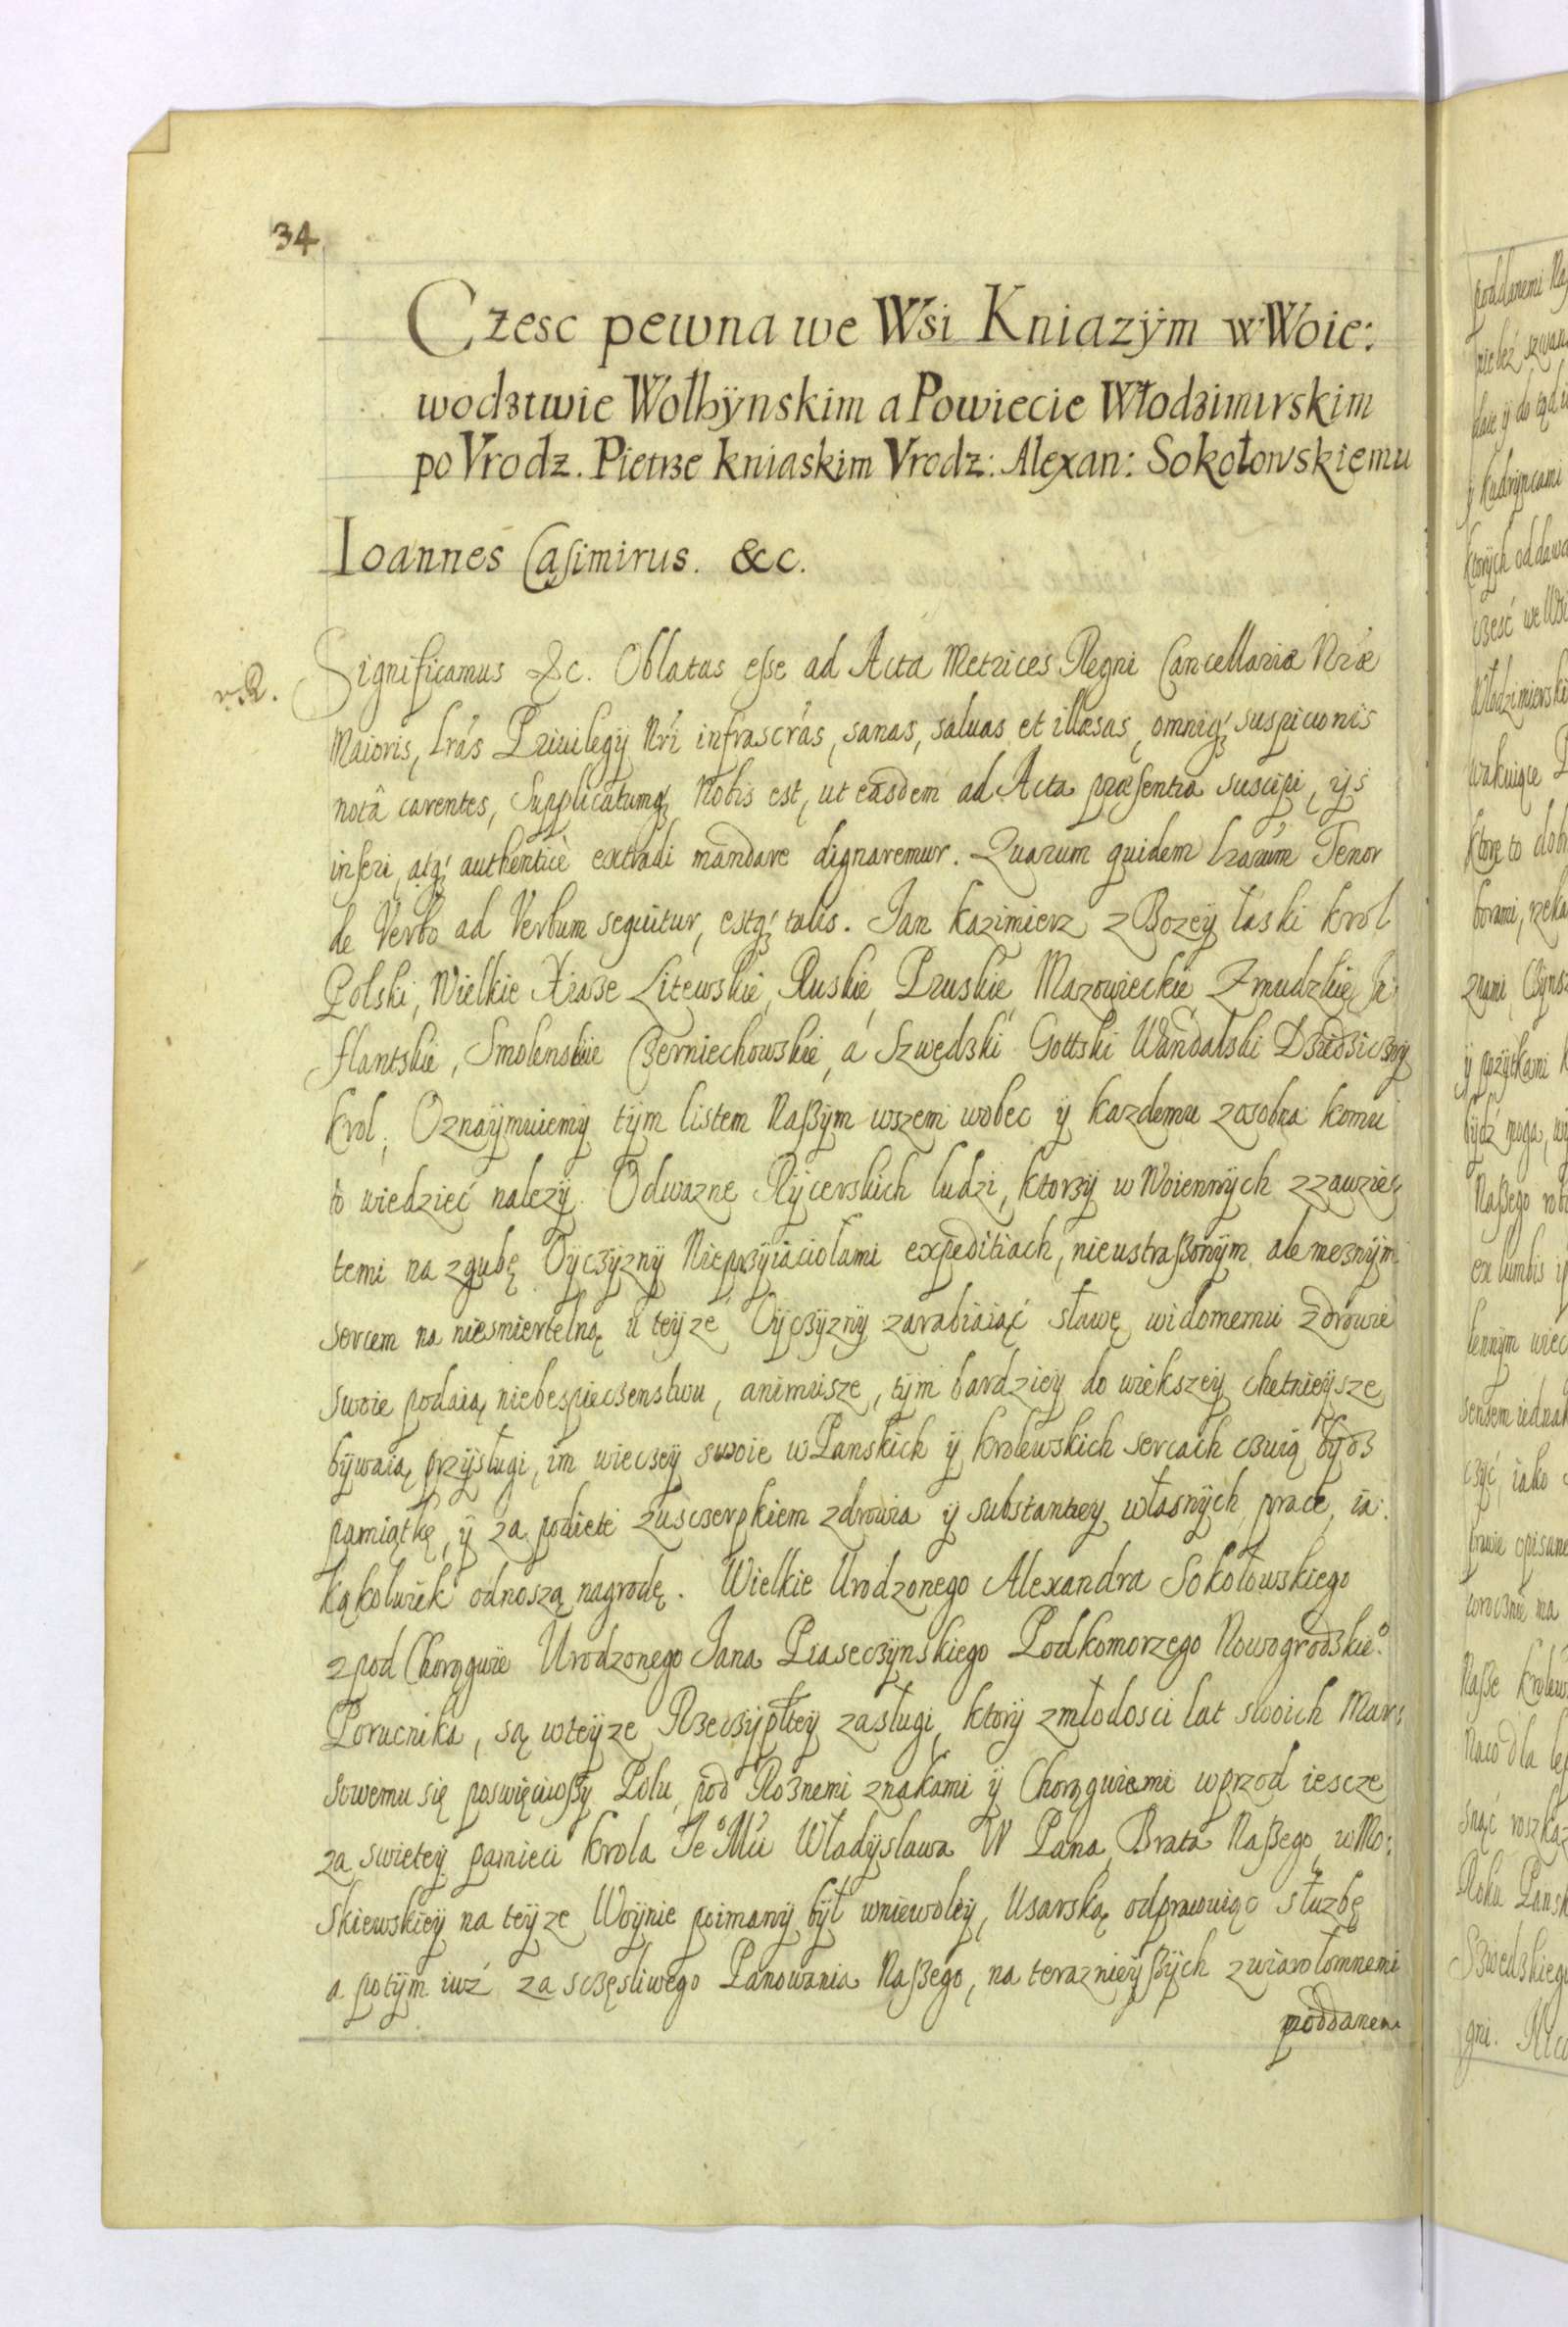 34
Czesc pewna we Wsi Kniazÿm w Woie:
wodztwie Wołhÿnskim a Powiecie Włodzimirskim
po Vrodz. Pietrze kniaskim Vrodz: Alexan: Sokołowskiemu
Ioannes Casimirus. &c.
Significamus &c. Oblatas esse ad Acta Metrices Regni Cancellariæ Nræ
Maioris, Lrás Priuilegÿ Nrí infrascrás, sanas, saluas et illæsas, omniq; suspicionis
notâ carentes, Supplicatumq; Nobis est, ut easdem ad Acta præsentia suscipi, ijs
inseri, atq; authenticè extradi mandare dignaremur. Quarum quidem Lrarum Tenor
de Verbo ad Verbum sequitur, estq; talis. Jan Kazimierz z Bozeÿ łaski krol
Polski, Wielkie Xiąże Litewskie, Ruskie, Pruskie Mazowieckie Zmudzkie, In:
flantskie, Smolenskie Czerniechowskie, á Szwedzki Gottski Wandalski Dziedziczny
krol. Oznaÿmuiemÿ tÿm listem Naszÿm wszem wobec ÿ kazdemu zosobna komu
to wiedzieć nalezÿ. Odwazne Rÿcerskich ludzi, ktorzÿ w Woiennÿch z zawzię:
temi na zgubę Oÿczÿznÿ Nieprzÿiaciołami expeditiach, nieustraszonÿm ale meznÿm
sercem na niesmiertelną u teÿze Oÿczÿznÿ zarabiaiąć sławę widomemu zdrowie
swoie podaią niebespieczenstwu, animusze, tÿm bardzieÿ do wiekszeÿ chetnieÿsze
bÿwaią przÿsługi, im wieczeÿ swoie w Panskich ÿ krolewskich sercach czuią bÿdz
pamiątkę, ÿ za podiete z uszczerpkiem zdrowia ÿ substantieÿ własnÿch prace, ia:
kąkolwiek odnoszą nagrodę. Wielkie Urodzonego Alexandra Sokołowskiego
z pod Chorągwie Urodzonego Jana Piaseczÿnskiego Podkomorzego Nowogrodskiego
Porucnika, są w teÿze Rzeczÿpłteÿ zasługi, ktorÿ z młodosci lat swoich Mars:
sowemu się poswięciwszÿ Polu, pod Roznemi znakami ÿ Chorągwiemi wprzod iescze
za swieteÿ pamieci krola Je° Mći Władÿslawa IV Pana, Brata Naszego, w Mo:
skiewskieÿ na teÿze Woÿnie poimanÿ bÿł w niewoleÿ, Usarską odprawuiąc słuzbę
a potÿm iuż za sczęsliwego Panowania Naszego, na teraznieÿszÿch z wiarołomnemi
poddanemi